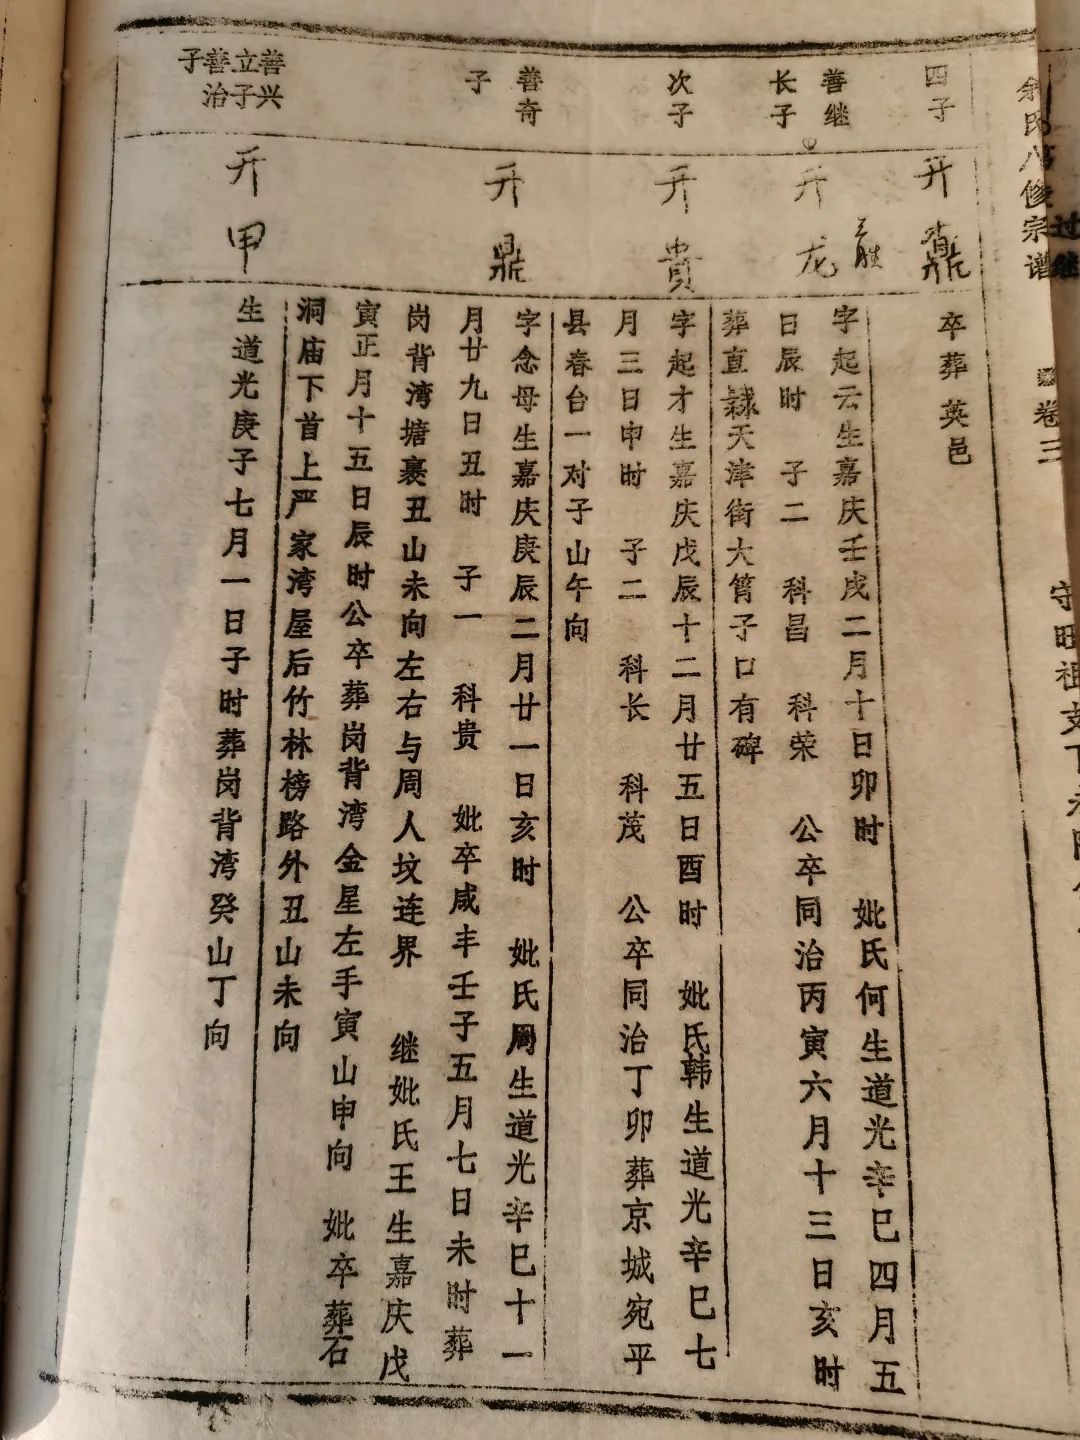 余氏八修宗谱
卷三
过继
四子
开鼒
卒葬英邑
善继
长子
开龙
字起云生嘉庆壬戌二月十日卯时 妣氏何生道光辛巳四月五
日辰时 子二 科昌 科荣 公卒同治丙寅六月十三日亥时
葬直隸天津街大筲子口有碑
次子
开貴
字起才生嘉庆戊辰十二月廿五日酉时 妣氏韩生道光辛巳七
月三日申时 子二 科长 科茂 公卒同治丁卯葬京城宛平
县春台一对子山午向
善奇
子
开鼎
字念母生嘉庆庚辰二月廿一日亥时 妣氏周生道光辛巳十一
月廿九日丑时 子一 科贵 妣卒咸丰壬子五月七日未时葬
岗背湾塘裹丑山未向左右与周人坟连界 继妣氏王生嘉庆戊
寅正月十五日辰时公卒葬岗背湾金星左手寅山申向 妣卒葬石
洞庙下首上严家湾屋后竹林榜路外丑山未向
善兴
立子
善治
子
开甲
生道光庚子七月一日子时葬岗背湾癸山丁向